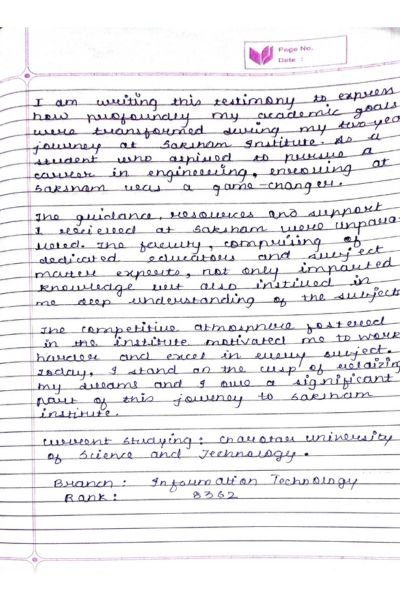 Page No.
Date :
I am writing this testimony to express
how profoundly my academic goals
were transformed during my two-year
journey at Saksham Institute. As a
student who aspired to pursue a
career in engineering, enrolling at
Saksham was a game-changer.
The guidance, resources and support
I received at Saksham were unpara-
lleled. The faculty, comprising of
dedicated educators and subject
matter experts, not only imparted
knowledge but also instilled in
me deep understanding of the subjects
The competitive atmosphere fostered
in the institute motivated me to work
harder and excel in every subject.
Today, I stand on the cusp of realizing
my dreams and I owe a significant
part of this journey to Saksham
institute.
Current Studying : Charotar University
of Science and Technology.
Branch : Information Technology
Rank : 8362